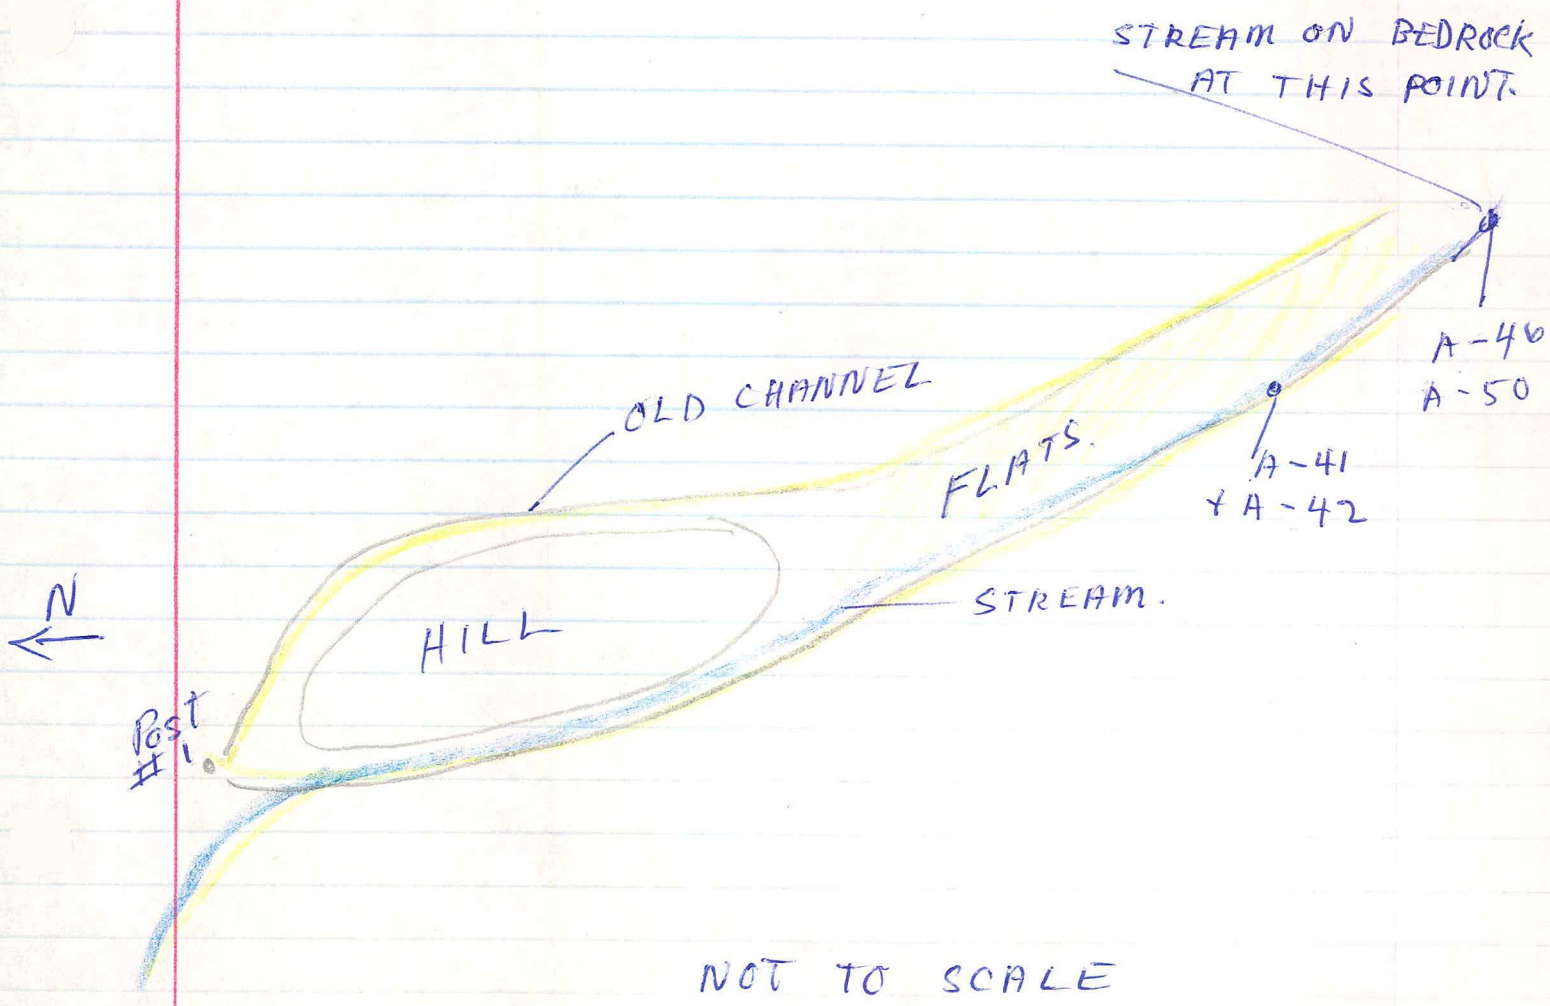 STREAM ON BEDROCK
AT THIS POINT.
A-46
A-50
OLD CHANNEL
FLATS.
A-41
+ A-42
N
HILL
STREAM.
Post
#1
NOT TO SCALE